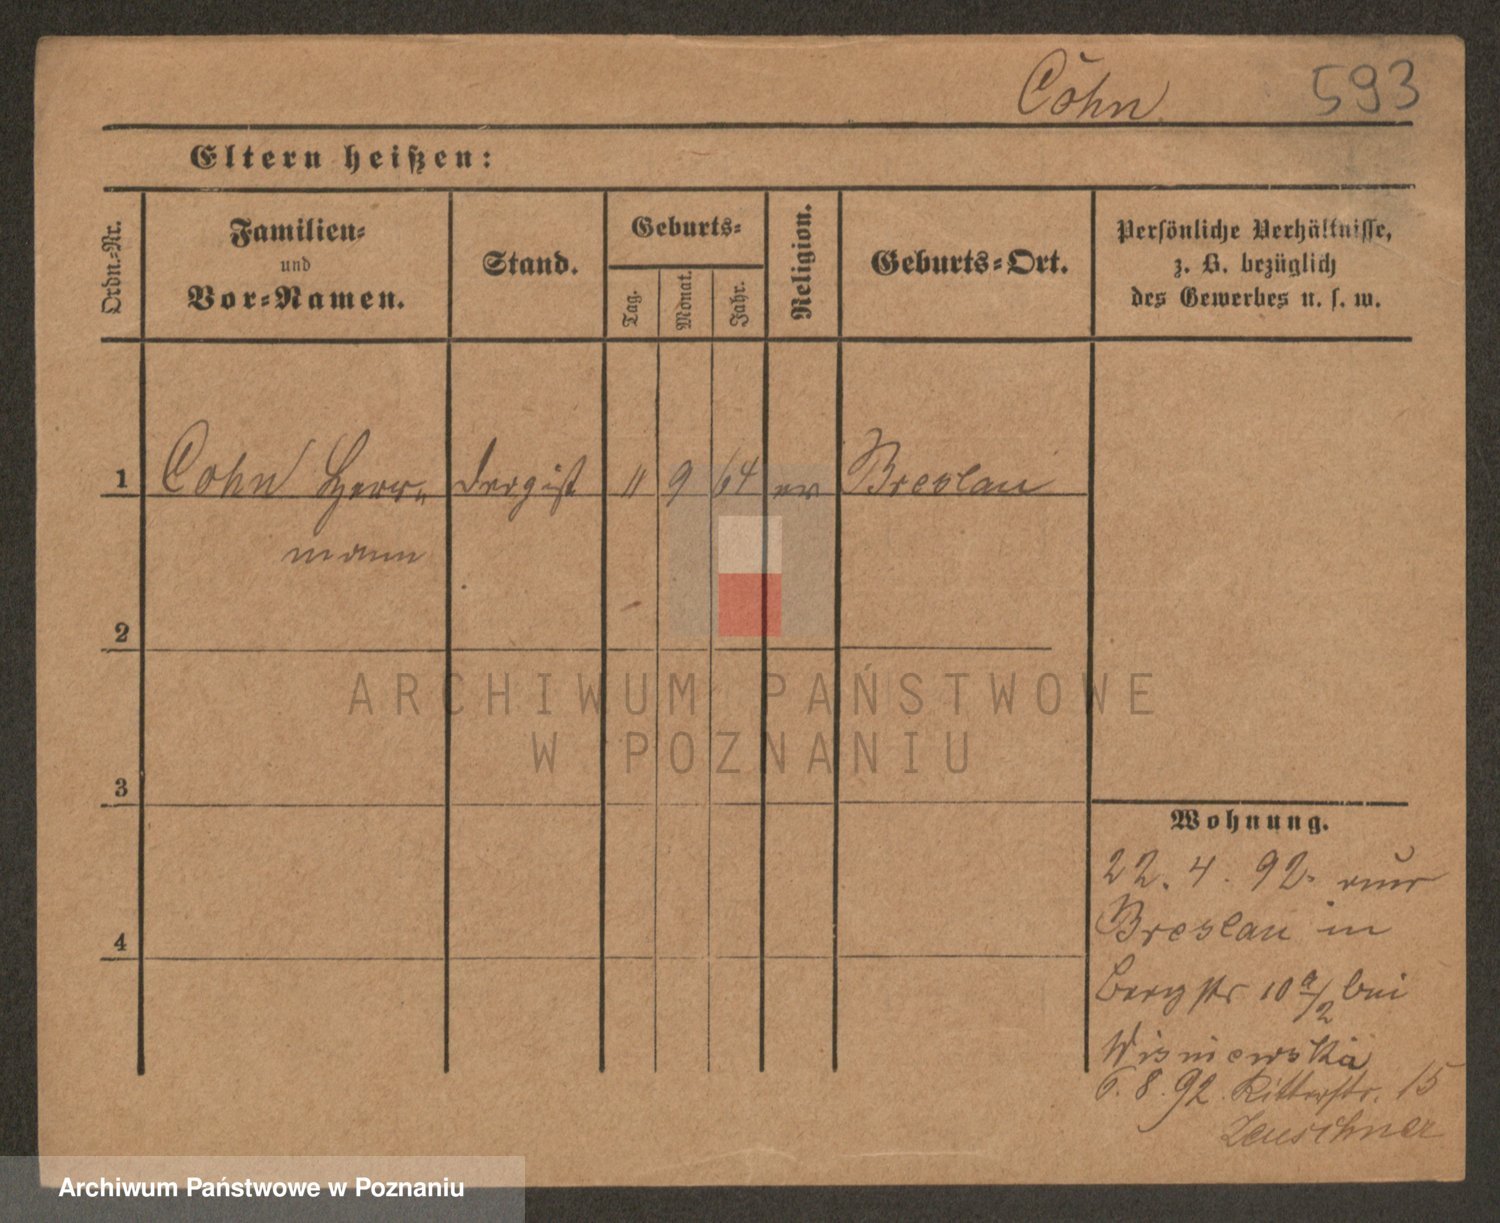 Cohn 593
Eltern heißen:
Ordn.-Nr.
Familien-
und
Vor-Namen.
Stand.
Geburts-
Tag.
Monat.
Jahr.
Religion.
Geburts-Ort.
Persönliche Verhältnisse,
z. B. bezüglich
des Gewerbes u. s. w.
1 Cohn Herr- 11 9 64 Breslau
mann
2
ARCHIWUM PAŃSTWOWE
W POZNANIU
3
Wohnung.
22. 4. 92.
Breslau in
4
Bergstr 10 a/2 bei
Wisniewska
6. 8. 92. Ritterstr. 15
Zeuschner
Archiwum Państwowe w Poznaniu